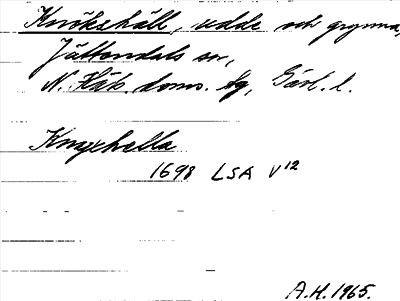 Knökshäll, udde och grynna,
Jättendals sn,
N. Häls. doms. tg, Gävl. l.
Knyxhella
1698 LSA V12
A.H. 1965.